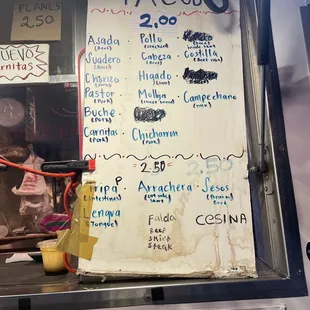 FLANES
2.50
NUEVO
Carnitas
TACOS
2.00
Asada
(Beef)
Pollo
(chicken)
Suadero
(Beef)
Cabeza
(Beef)
Costilla
(Beef ribs)
Chorizo
(Pork)
Higado
Pastor
(Pork)
Campechano
(mix)
Buche
(Pork)
Carnitas
(Pork)
Chicharron
(Pork)
2.50
2.50
Tripa
(Intestines)
Arrachera
Sesos
Lengua
(Tongue)
Falda
Beef
Skirt
Steak
CESINA